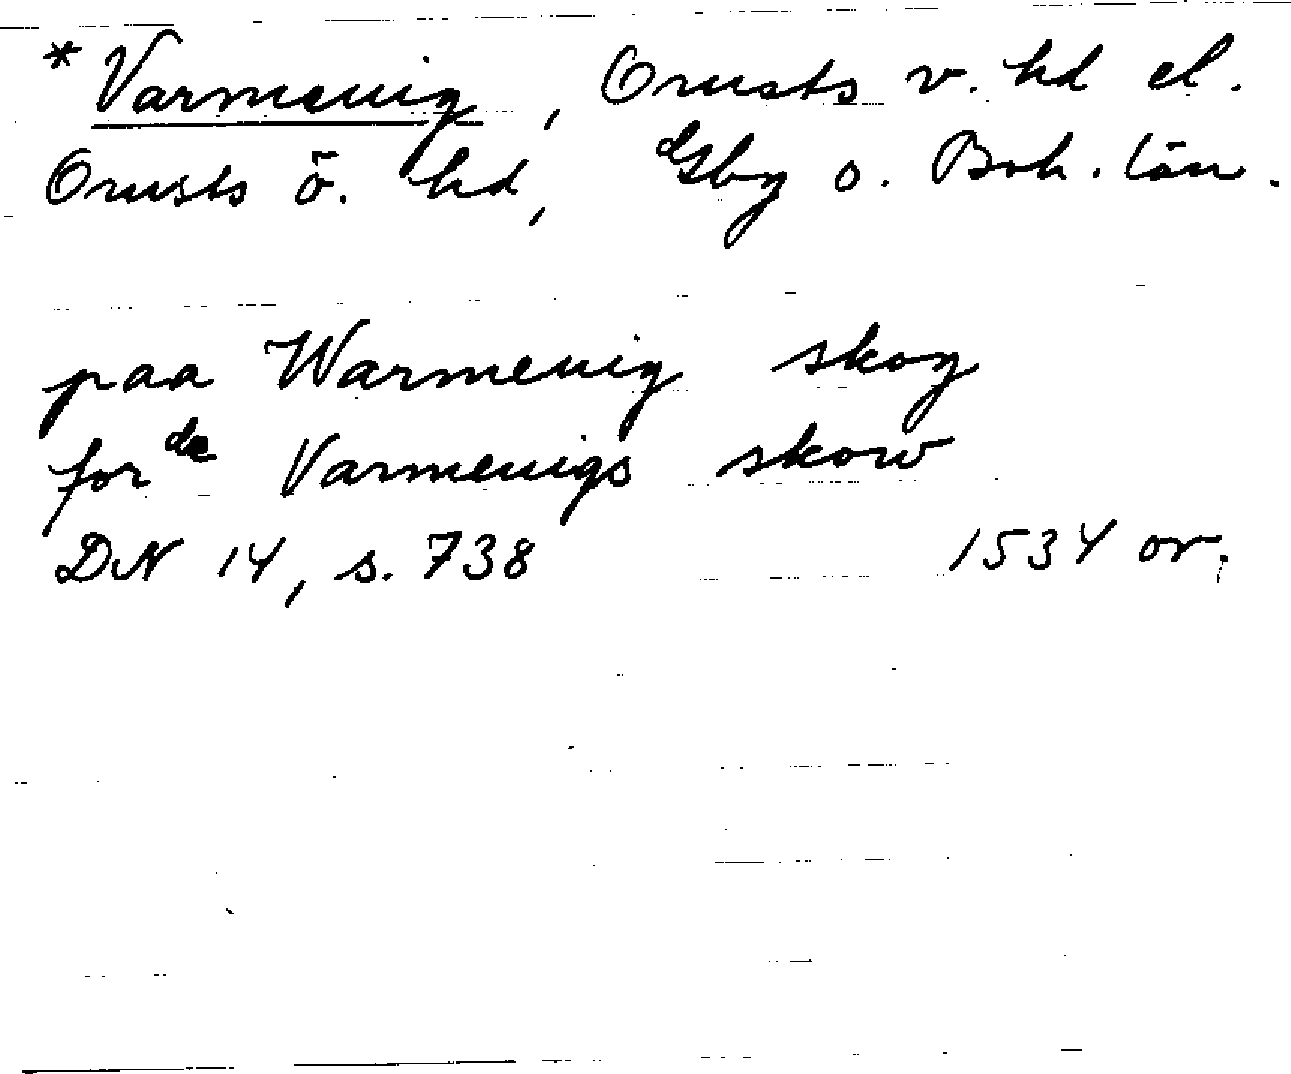 * Varmenig, Orusts v. hd el.
Orusts ö. hd, Gbg o. Boh. län.
paa Warmenig skog
for de Varmenigs skow
DN 14, s. 738 1534 or.